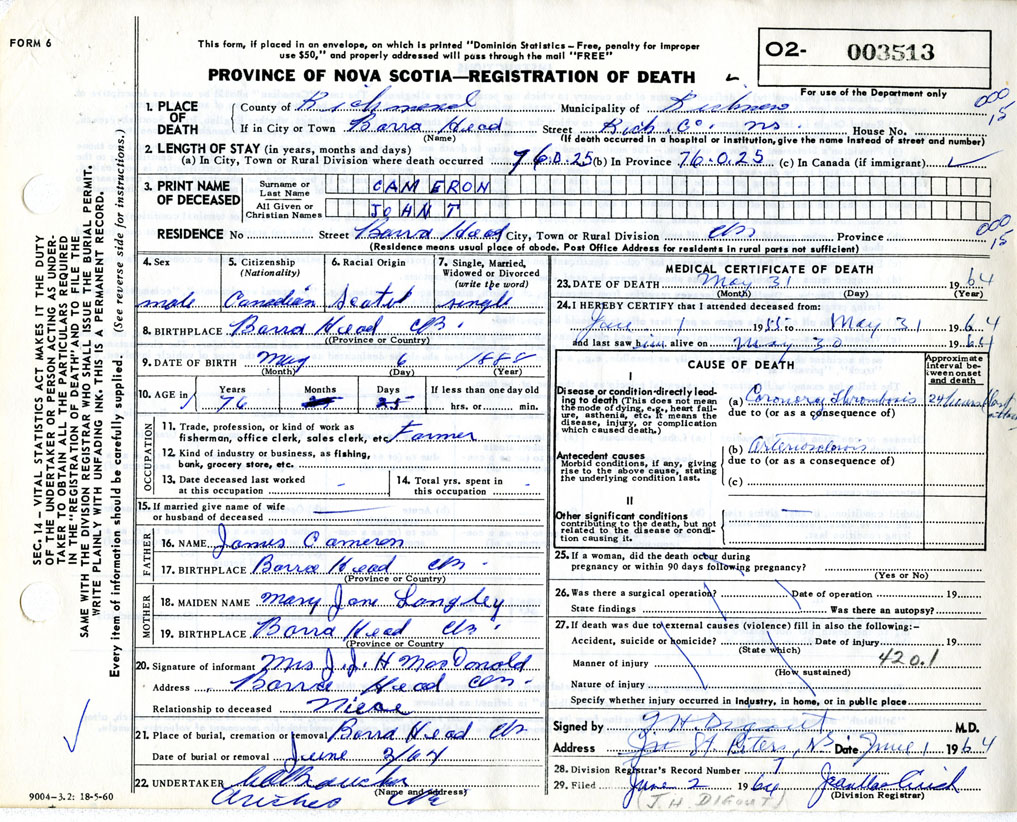 FORM 6
This form, if placed in an envelope, on which is printed "Dominion Statistics – Free, penalty for improper
use $50," and properly addressed will pass through the mail "FREE"
O2- 003513
PROVINCE OF NOVA SCOTIA—REGISTRATION OF DEATH
For use of the Department only
1. PLACE OF DEATH
County of Richmond Municipality of
If in City or Town Barra Head Street Rich. Co. NS. House No.
(Name) (If death occurred in a hospital or institution, give the name instead of street and number)
000
15
2. LENGTH OF STAY (in years, months and days)
(a) In City, Town or Rural Division where death occurred 76.0.25 (b) In Province 76.0.25 (c) In Canada (if immigrant)
3. PRINT NAME OF DECEASED
Surname or Last Name CAMERON
All Given or Christian Names JOHN T
RESIDENCE No Street Barra Head City, Town or Rural Division CB Province
(Residence means usual place of abode. Post Office Address for residents in rural parts not sufficient)
000
15
4. Sex 5. Citizenship (Nationality) 6. Racial Origin 7. Single, Married, Widowed or Divorced (write the word)
male Canadian Scotch single
8. BIRTHPLACE Barra Head CB.
(Province or Country)
9. DATE OF BIRTH May 6 1888
(Month) (Day) (Year)
10. AGE in Years Months Days If less than one day old
76 25 hrs. or min.
OCCUPATION
11. Trade, profession, or kind of work as
fisherman, office clerk, sales clerk, etc. Farmer
12. Kind of industry or business, as fishing,
bank, grocery store, etc.
13. Date deceased last worked at this occupation
14. Total yrs. spent in this occupation
15. If married give name of wife
or husband of deceased
FATHER
16. NAME James Cameron
17. BIRTHPLACE Barra Head CB.
(Province or Country)
MOTHER
18. MAIDEN NAME Mary Jane Langley
19. BIRTHPLACE Barra Head CB.
(Province or Country)
20. Signature of informant Mrs J. H MacDonald
Address Barra Head CB.
Relationship to deceased Niece
21. Place of burial, cremation removal Barra Head CB
Date of burial or removal June 2/64
22. UNDERTAKER
(Name and address)
Arichat CB
9004–3.2: 18-5-60
MEDICAL CERTIFICATE OF DEATH
23. DATE OF DEATH May 31 19 64
(Month) (Day) (Year)
24. I HEREBY CERTIFY that I attended deceased from:
June 1 19 to May 31 19 64
and last saw him alive on May 30 19 64
CAUSE OF DEATH
Approximate interval between onset and death
I
Disease or condition directly leading to death (This does not mean the mode of dying, e.g., heart failure, asthenia, etc. It means the disease, injury, or complication which caused death.)
(a) Coronary Thrombosis 24 hours
due to (or as a consequence of)
Antecedent causes
Morbid conditions, if any, giving rise to the above cause, stating the underlying condition last.
(b) Arteriosclerosis
due to (or as a consequence of)
(c)
II
Other significant conditions
contributing to the death, but not related to the disease or condition causing it.
25. If a woman, did the death occur during
pregnancy or within 90 days following pregnancy?
(Yes or No)
26. Was there a surgical operation? Date of operation 19
State findings Was there an autopsy?
27. If death was due to external causes (violence) fill in also the following:–
Accident, suicide or homicide? Date of injury 19
(State which)
420.1
Manner of injury
(How sustained)
Nature of injury
Specify whether injury occurred in Industry, in home, or in public place
Signed by J H Digout M.D.
Address St Peters, NS Date June 1 1964
28. Division Registrar's Record Number 7
29. Filed June 2 1964
(Division Registrar)
(J. H. DIGOUT)
SEC. 14 – VITAL STATISTICS ACT MAKES IT THE DUTY
OF THE UNDERTAKER OR PERSON ACTING AS UNDER-
TAKER TO OBTAIN ALL THE PARTICULARS REQUIRED
IN THE "REGISTRATION OF DEATH" AND TO FILE THE
SAME WITH THE DIVISION REGISTRAR WHO SHALL ISSUE THE BURIAL PERMIT.
WRITE PLAINLY WITH UNFADING INK. THIS IS A PERMANENT RECORD.
Every item of information should be carefully supplied. (See reverse side for instructions.)